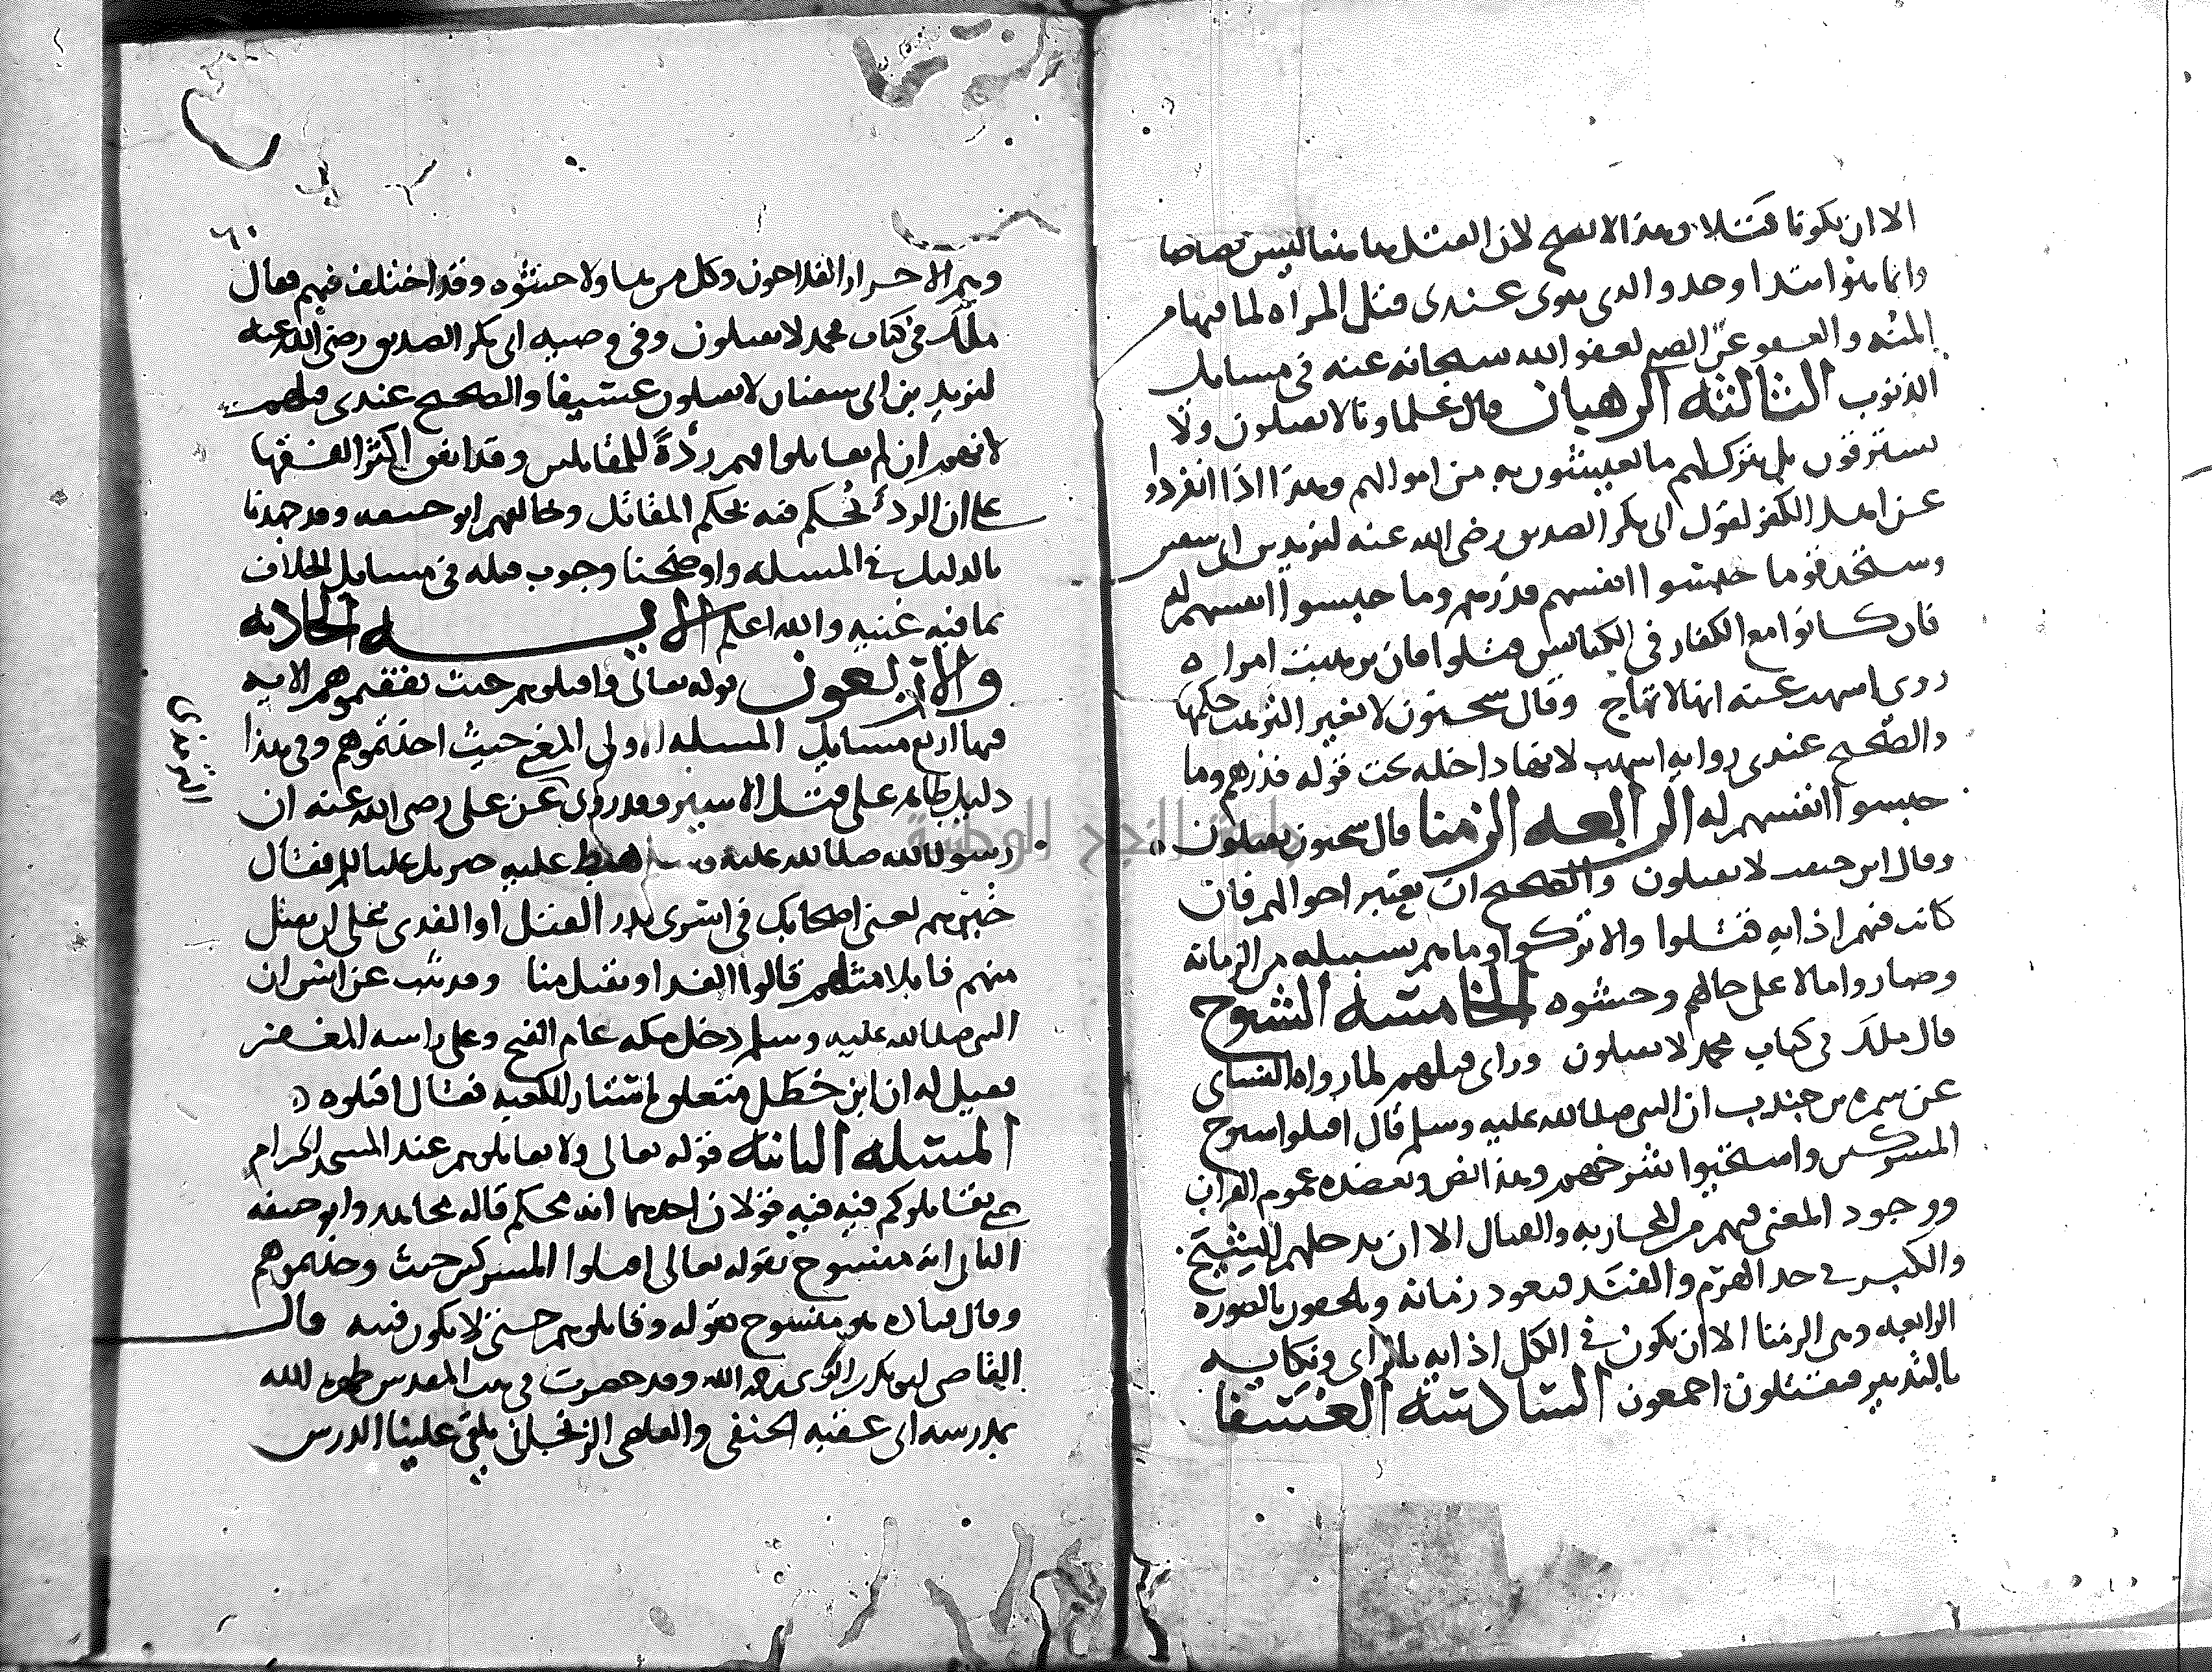 الا ان يكونا قتلا وهذا لا يصح لان القتل هاهنا ليس قصاصا
وانما هو ابتدا وحد والذي يقوى عندي قتل المراه لما فيها من
المنه والعفو عن الصبي لعفو الله سبحانه عنه في مسايل
الذنوب الثالثه الرهبان قال علماونا لا يقتلون ولا
يسترقون بل يترك لهم ما يعيشون به من اموالهم وهذا اذا انفردوا
عن اهل الكفر لقول ابي بكر الصديق رضي الله عنه ليزيد بن ابي سفين
وستجد قوما حبسوا انفسهم فذرهم وما حبسوا انفسهم له
فان كانوا مع الكفار في الكنايس قتلوا فان ترهبت امراه
روى اشهب عنه انها لا تهاج وقال سحنون لا يغير الترهب حكمها
والصحيح عندي روايه اشهب لانها داخله تحت قوله فذرهم وما
حبسوا انفسهم له الرابعه الزمنا قال سحنون يقتلون
وقال ابن حبيب لا يقتلون والصحيح ان يعتبر احوالهم فان
كانت فيهم اذايه قتلوا والا تركوا وما هم بسبيله من الزمانه
وصاروا مالا على حالهم وحشوه الخامسه الشيوخ
قال ملك في كتاب محمد لا يقتلون وراى قتلهم لما رواه النساى
عن سمره بن جندب ان النبي صلى الله عليه وسلم قال اقتلوا شيوخ
المشركين واستحيوا شرخهم وهذا نص ويعضده عموم القران
ووجود المعنى فيهم من المحاربه والقتال الا ان يدخلهم التشيخ
والكبر في حد الهرم والفند فتعود زمانه ويلحقون بالصوره
الرابعه وهي الزمنا الا ان يكون في الكل اذايه بالراى ونكايه
بالتدبير فيقتلون اجمعون السادسه العسفا
٦٠
وهم الاحرار الفلاحون وكل من هاولا حشوه وقد اختلف فيهم فقال
ملك في كتاب محمد لا يقتلون وفي وصيه ابي بكر الصديق رضي الله عنه
ليزيد بن ابي سفيان لا يقتلون عسيفا والصحيح عندي قتلهم
لانهم ان لم يقاتلوا فهم ردءة للمقاتلين وقد اتفق اكثر الفقها
على ان الردء يحكم فيه بحكم المقاتل وخالفهم ابو حنيفه وقد مهدنا
بالدليل في المسله واوضحنا وجوب قتله في مسايل الخلاف
بما فيه غنيه والله اعلم الايـــه الحاديه
والاربعون قوله تعالى واقتلوهم حيث ثقفتموهم الايه
فيها اربع مسايل المسله الاولى المعنى حيث اخذتموهم وفي هذا
دليل ظاهر على قتل الاسير وقد روى عن علي رضي الله عنه ان
رسول الله صلى الله عليه وسلم هبط عليه جبريل عليه السلم فقال
خيرهم يعني اصحابك في اسرى بدر القتل او الفدى على ان يقتل
منهم قابلا مثلهم قالوا الفدا ويقتل منا وقد ثبت عن انس ان
النبي صلى الله عليه وسلم دخل مكه عام الفتح وعلى راسه المغفر
فقيل له ان ابن خطل متعلق باستار الكعبه فقال اقتلوه
المسله الثانيه قوله تعالى ولا تقاتلوهم عند المسجد الحرام
حتى يقاتلوكم فيه فيه قولان احدهما انه محكم قاله مجاهد وابو حنيفه
الثاني انه منسوخ بقوله تعالى اقتلوا المشركين حيث وجدتموهم
وقال قتاده هو منسوخ بقوله وقاتلوهم حتى لا تكون فتنه قال
القاضي ابو بكر رحمه الله وقد حضرت في بيت المقدس طهره الله
بمدرسه ابي عقبه الحنفي والقاضي الزنجاني يلقي علينا الدرس